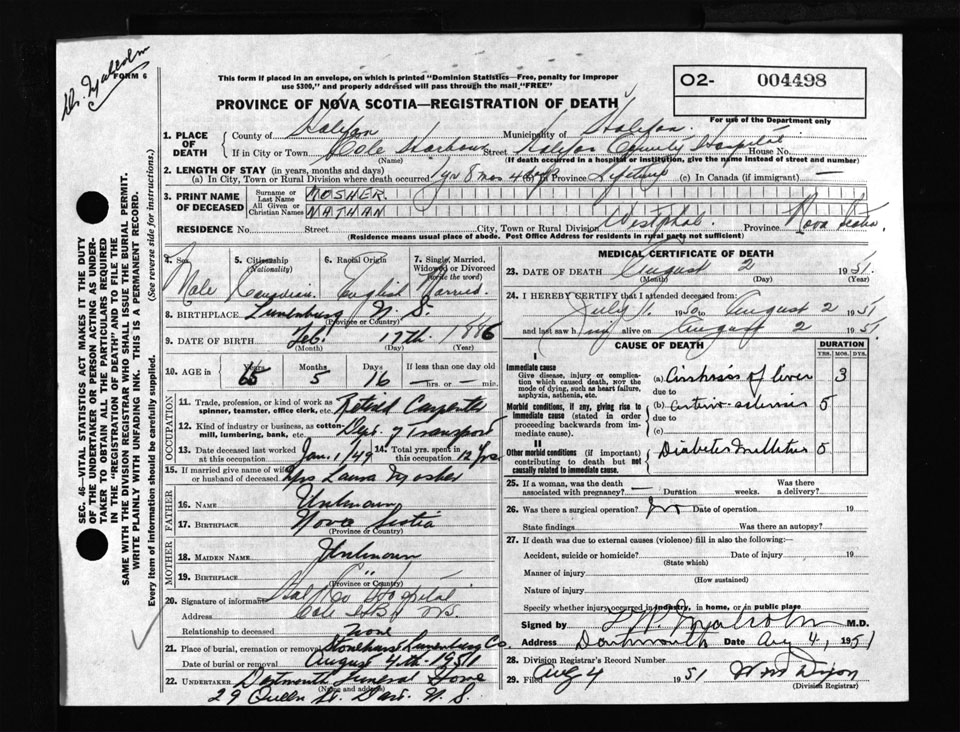 Dr. Malcolm
FORM 6
This form if placed in an envelope, on which is printed "Dominion Statistics—Free, penalty for improper
use $300," and properly addressed will pass through the mail "FREE"
O2- 004498
For use of the Department only
PROVINCE OF NOVA SCOTIA—REGISTRATION OF DEATH
1. PLACE OF DEATH
County of Halifax Municipality of Halifax
If in City or Town Cole Harbour Street Halifax County Hospital House No.
(Name) (If death occurred in a hospital or institution, give the name instead of street and number)
2. LENGTH OF STAY (in years, months and days)
(a) In City, Town or Rural Division where death occurred 1 yr 8 mos 4 days (b) Province Lifetime (c) In Canada (if immigrant) —
3. PRINT NAME OF DECEASED
Surname or Last Name MOSHER
All Given or Christian Names NATHAN
RESIDENCE No. Street City, Town or Rural Division Westphal Province Nova Scotia
(Residence means usual place of abode. Post Office Address for residents in rural parts not sufficient)
4. Sex Male
5. Citizenship (Nationality) Canadian
6. Racial Origin English
7. Single, Married, Widowed or Divorced (write the word) Married
8. BIRTHPLACE Lunenburg N. S.
(Province or Country)
9. DATE OF BIRTH Feb. 17th. 1886
(Month) (Day) (Year)
10. AGE in Years 65 Months 5 Days 16 If less than one day old — hrs. or — min.
OCCUPATION
11. Trade, profession, or kind of work as spinner, teamster, office clerk, etc. Retired Carpenter
12. Kind of industry or business, as cotton-mill, lumbering, bank, etc. Dept. of Transport
13. Date deceased last worked at this occupation Jan. 1/49 14. Total yrs. spent in this occupation 12 Yrs
15. If married give name of wife or husband of deceased Mrs Laura Mosher
FATHER
16. Name Unknown
17. Birthplace Nova Scotia
(Province or Country)
MOTHER
18. Maiden Name Unknown
19. Birthplace
(Province or Country)
20. Signature of informant Hal Co Hospital
Address Cole Hbr NS
Relationship to deceased None
21. Place of burial, cremation or removal Lunenburg Co.
Date of burial or removal August 4th-1951
22. UNDERTAKER Dartmouth Funeral Home
(Name and address)
29 Queen St. Dart. N. S.
MEDICAL CERTIFICATE OF DEATH
23. DATE OF DEATH August 2 1951.
(Month) (Day) (Year)
24. I HEREBY CERTIFY that I attended deceased from:
July 1. 1950 to August 2 1951
and last saw him alive on August 2 1951
CAUSE OF DEATH
DURATION
YRS. MOS. DYS.
I
Immediate cause
Give disease, injury or complication which caused death, NOT the mode of dying, such as heart failure, asphyxia, asthenia, etc.
(a) Cirrhosis of liver 3
due to
Morbid conditions, if any, giving rise to immediate cause (stated in order proceeding backwards from immediate cause).
(b) Arterio-sclerosis 5
due to
(c)
II
Other morbid conditions (if important) contributing to death but not causally related to immediate cause.
Diabetes mellitus 5
25. If a woman, was the death associated with pregnancy? — Duration weeks. Was there a delivery?
26. Was there a surgical operation? No Date of operation 19
State findings Was there an autopsy?
27. If death was due to external causes (violence) fill in also the following:—
Accident, suicide or homicide? Date of injury 19
(State which)
Manner of injury
(How sustained)
Nature of injury
Specify whether injury occurred in industry, in home, or in public place
Signed by Malcolm M.D.
Address Dartmouth Date Aug 4, 1951
28. Division Registrar's Record Number
29. Filed Aug 4 1951 Wm Dixon
(Division Registrar)
SEC. 46—VITAL STATISTICS ACT MAKES IT THE DUTY
OF THE UNDERTAKER OR PERSON ACTING AS UNDER-
TAKER TO OBTAIN ALL THE PARTICULARS REQUIRED
IN THE "REGISTRATION OF DEATH" AND TO FILE THE
SAME WITH THE DIVISION REGISTRAR WHO SHALL ISSUE THE BURIAL PERMIT.
WRITE PLAINLY WITH UNFADING INK. THIS IS A PERMANENT RECORD.
Every item of information should be carefully supplied. (See reverse side for instructions.)